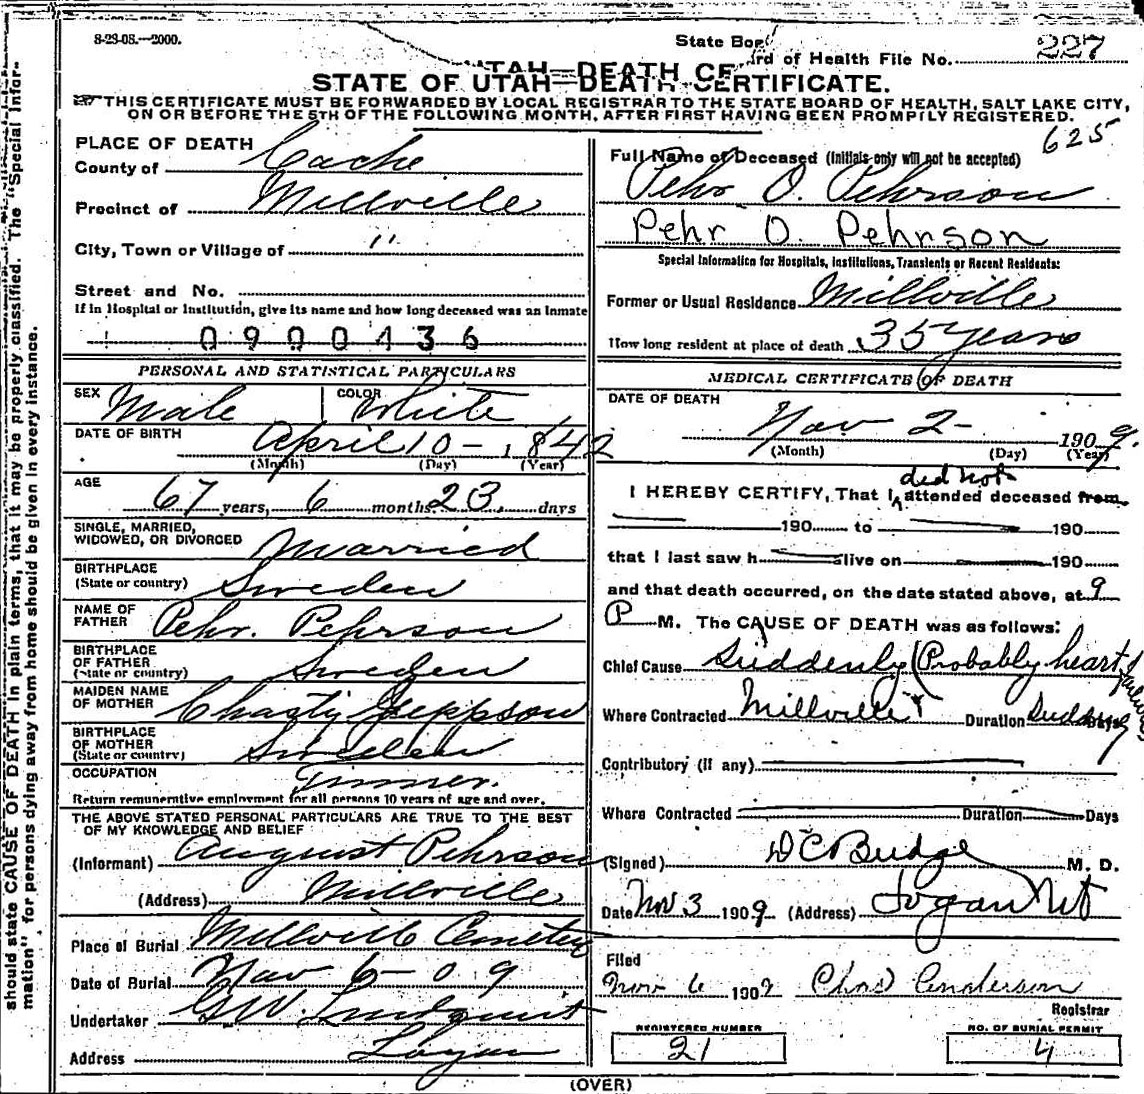 8-23-05.—2000.
State Bor
ard of Health File No. 227
UTAH—DEATH CE
STATE OF UTAH—DEATH CERTIFICATE.
THIS CERTIFICATE MUST BE FORWARDED BY LOCAL REGISTRAR TO THE STATE BOARD OF HEALTH, SALT LAKE CITY,
ON OR BEFORE THE 5TH OF THE FOLLOWING MONTH, AFTER FIRST HAVING BEEN PROMPTLY REGISTERED.
625
should state CAUSE OF DEATH in plain terms, that it may be properly classified. The "Special Infor-
mation" for persons dying away from home should be given in every instance.
PLACE OF DEATH
County of Cache
Precinct of Millville
City, Town or Village of "
Street and No.
If in Hospital or Institution, give its name and how long deceased was an Inmate
0900436
PERSONAL AND STATISTICAL PARTICULARS
SEX Male COLOR White
DATE OF BIRTH April 10 - 1842
(Month) (Day) (Year)
AGE 67 years, 6 months 23 days
SINGLE, MARRIED,
WIDOWED, OR DIVORCED Married
BIRTHPLACE
(State or country) Sweden
NAME OF
FATHER Pehr. Pehrson
BIRTHPLACE
OF FATHER
(State or country) Sweden
MAIDEN NAME
OF MOTHER Chasty Jeppson
BIRTHPLACE
OF MOTHER
(State or country) Sweden
OCCUPATION
Return remunerative employment for all persons 10 years of age and over.
THE ABOVE STATED PERSONAL PARTICULARS ARE TRUE TO THE BEST
OF MY KNOWLEDGE AND BELIEF
(Informant) August Pehrson
(Address) Millville
Place of Burial Millville Cemetery
Date of Burial Nov 6 - 09
Undertaker G.W. Lindquist
Address Logan
Full Name of Deceased (Initials only will not be accepted)
Pehr O. Pehrson
Pehr O. Pehrson
Special Information for Hospitals, Institutions, Transients or Recent Residents:
Former or Usual Residence Millville
How long resident at place of death 35 years
MEDICAL CERTIFICATE OF DEATH
DATE OF DEATH
Nov 2 - 1909
(Month) (Day) (Year)
did not
I HEREBY CERTIFY, That I attended deceased from
190 to 190
that I last saw h alive on 190
and that death occurred, on the date stated above, at 9
P M. The CAUSE OF DEATH was as follows:
Chief Cause Suddenly (Probably heart failure)
Where Contracted Millville Duration Suddenly Days
Contributory (if any)
Where Contracted Duration Days
(Signed) D C Budge M. D.
Date Nov 3 1909 (Address) Logan Ut
Filed
Nov 6 1909 Chas Anderson
Registrar
REGISTERED NUMBER
21
NO. OF BURIAL PERMIT
4
(OVER)